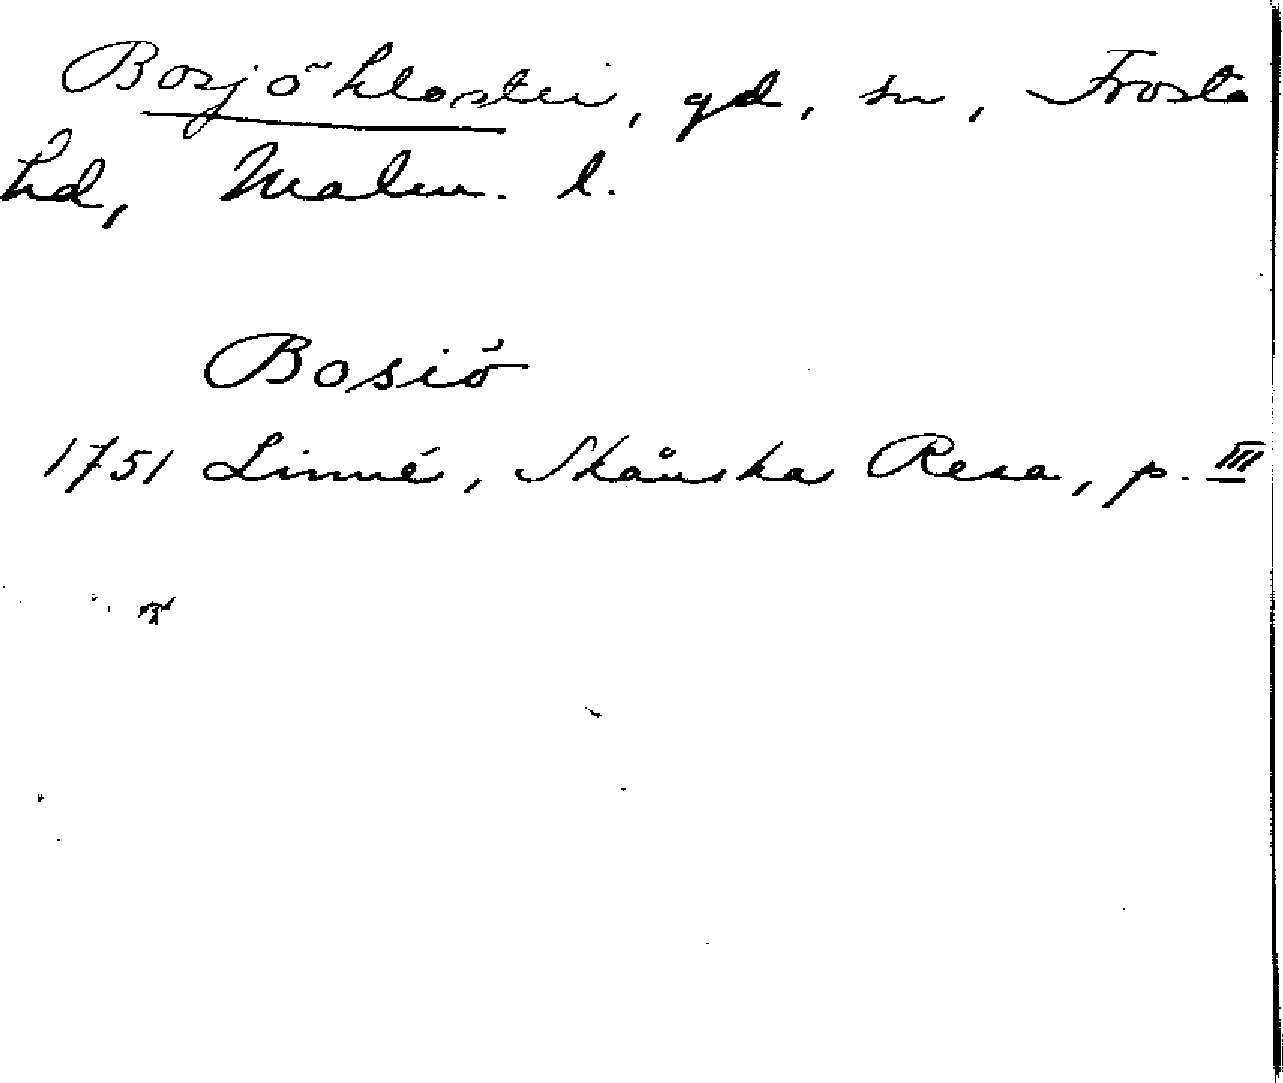 Bosjökloster, gd, sn, Frosta
hd, Malm. l.
Bosiö
1751 Linné, Skånska Resa, p. III